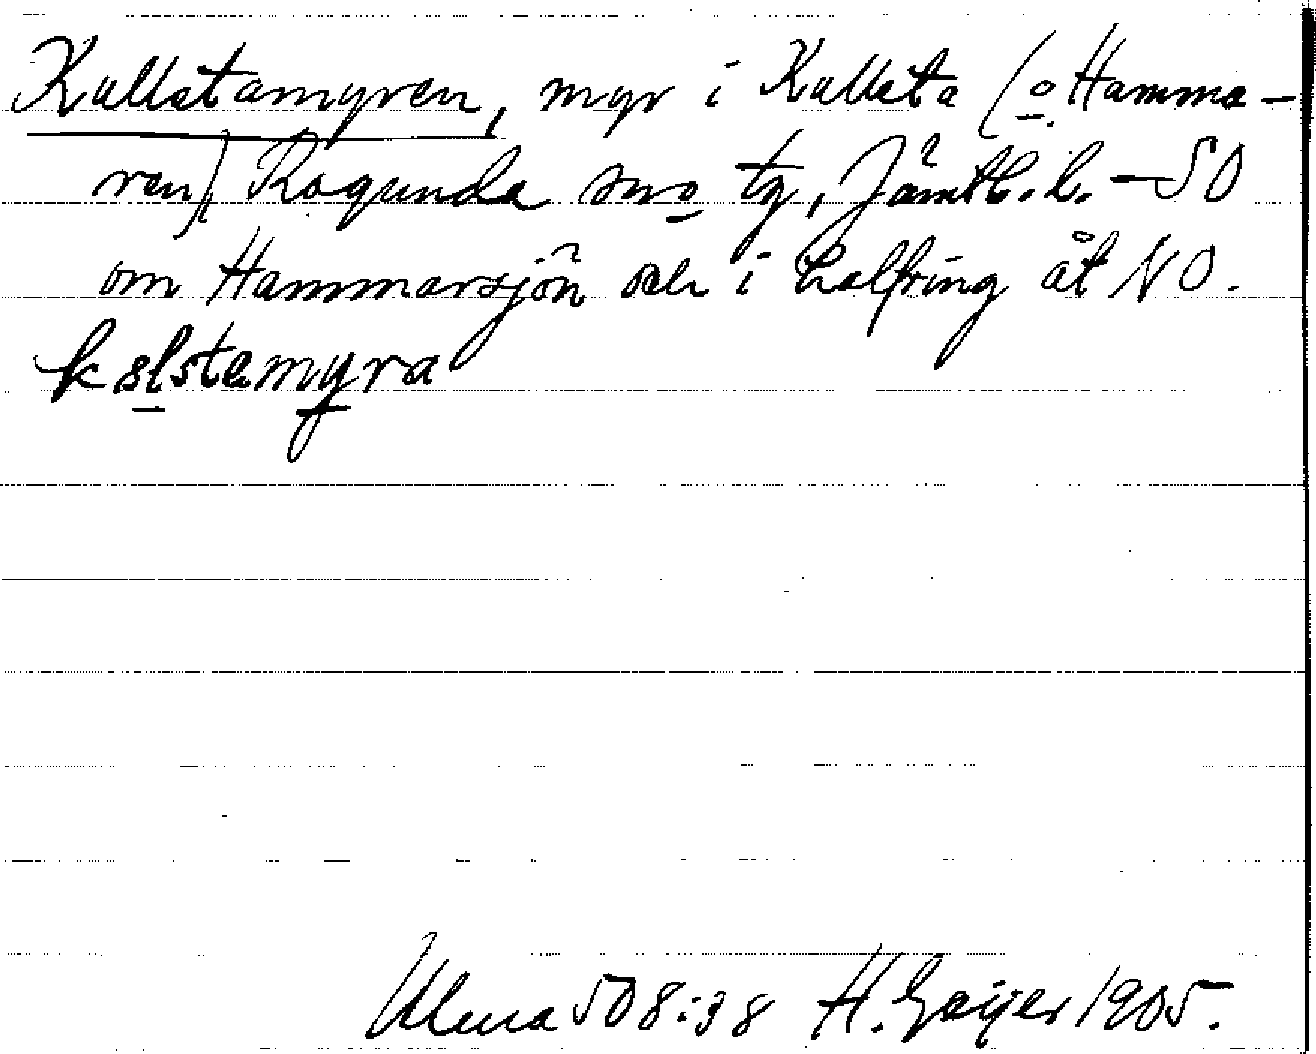 Kullstamyren, myr i Kullsta (o Hamma-
ren) Ragunda sn o tg, Jämtl. l. – SO
om Hammarsjön och i halfring åt NO.
kslstamyra
Ulma 508:38 H. Geijer 1905.